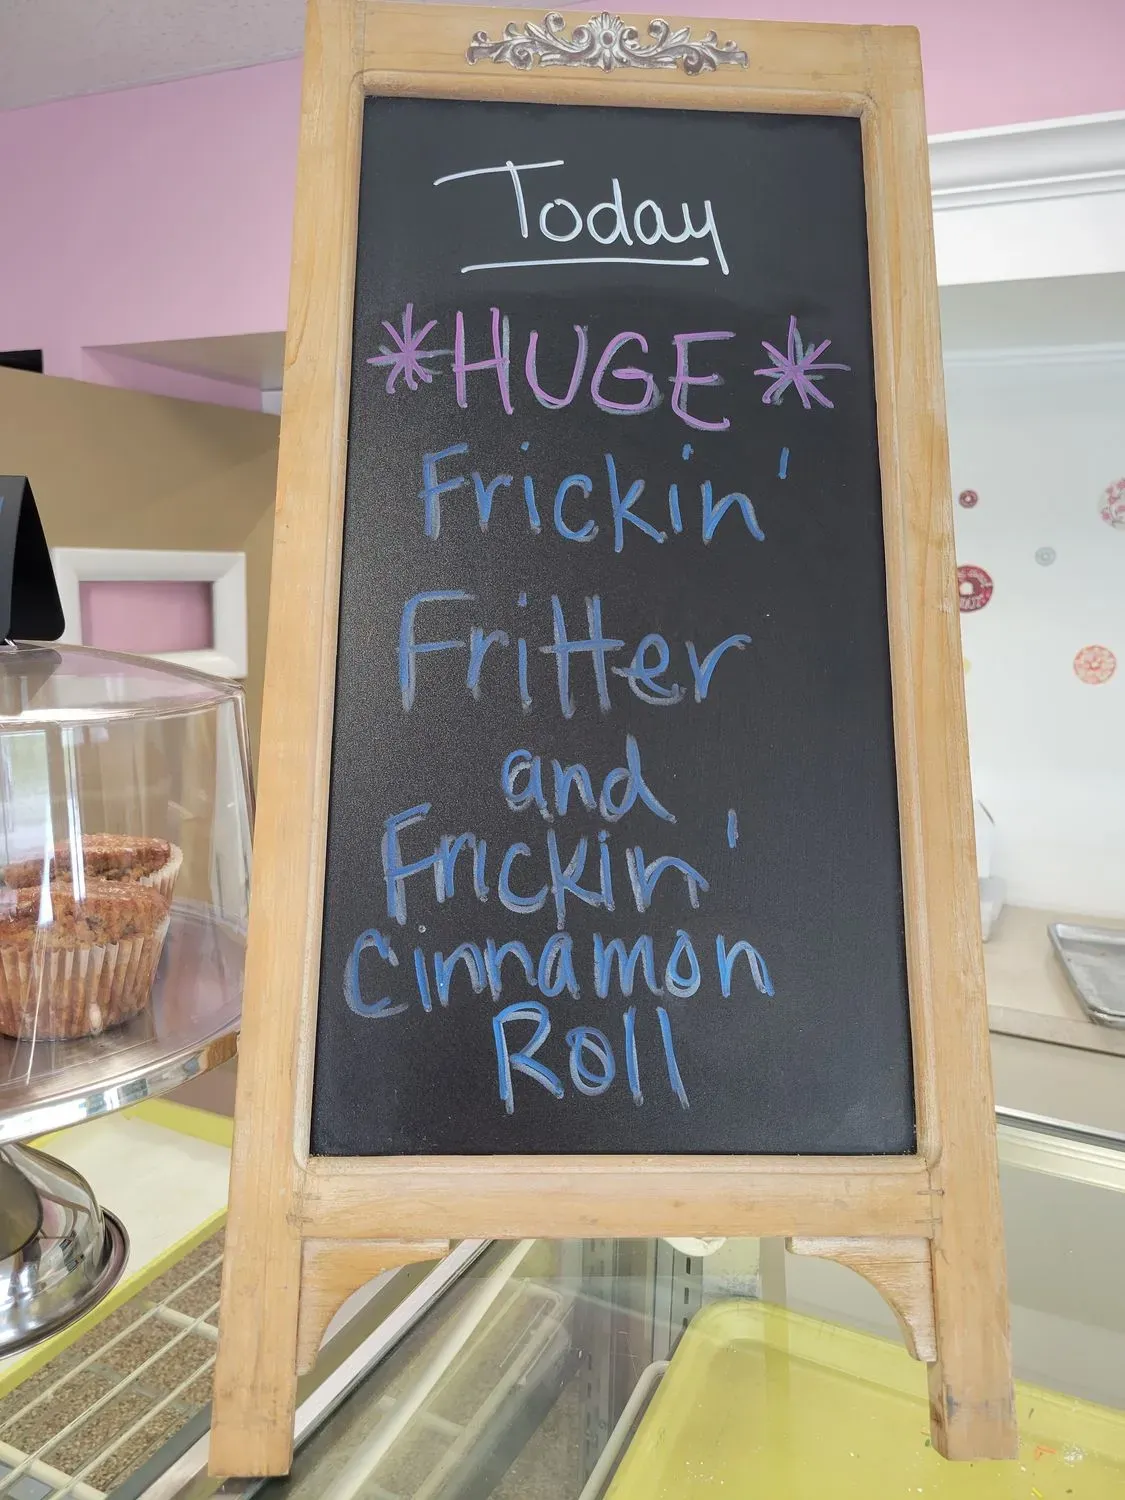 Today
*HUGE*
Frickin'
Fritter
and
Frickin'
Cinnamon
Roll